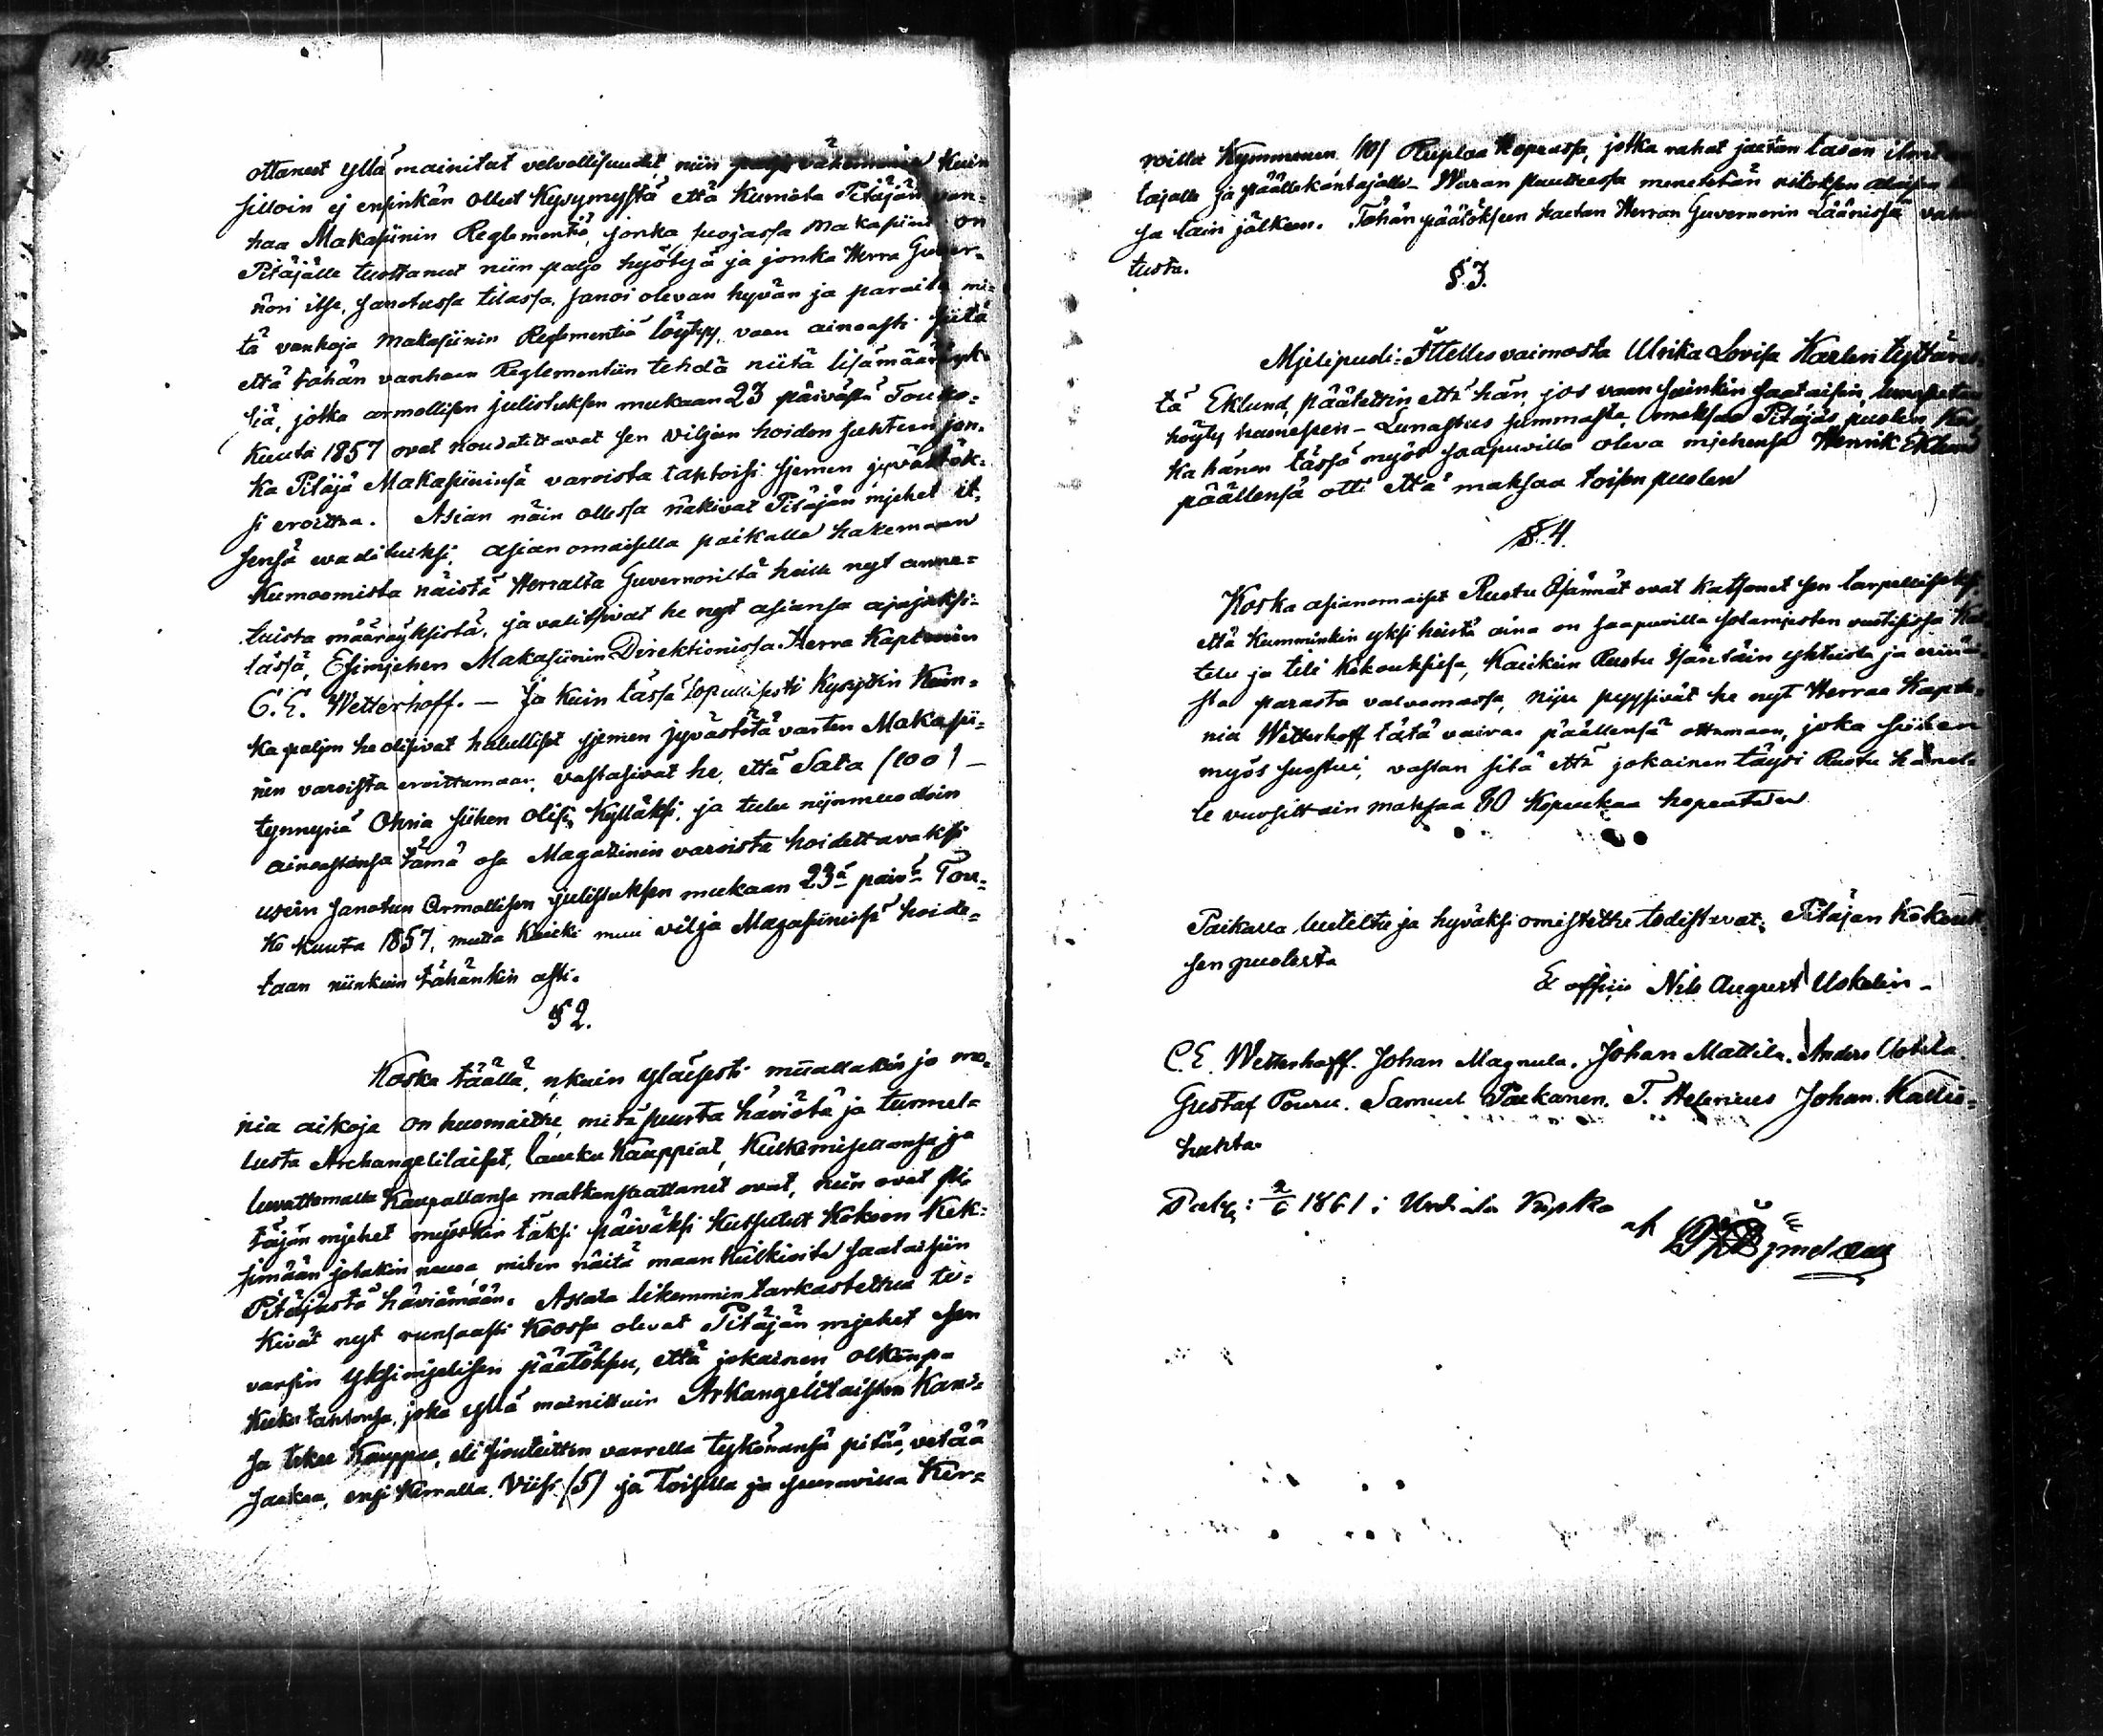 ottaneet yllä mainitat velvollisuudet, niin vähemmin kuin
silloin ej ensinkän ollut kysymystä että kumota Pitäjän van-
haa Makasiinin Reglementiä, jonka suojassa Makasiini on
Pitäjälle tuottanut niin paljo hyötyä ja jonka Herra Guver-
nöri itse, sanotussa tilassa, sanoi olevan hyvän ja parait mi-
tä vanhoja Makasiinin Reglementiä löytyy, vaan ainoasti siitä
että tähän vanhaan Reglementiin tehdä niitä lisämääräyk-
siä, jotka armollisen julistuksen mukaan 23 päivästä Touko-
kuuta 1857 ovat noudatettavat sen viljan hoidon suhteen jon-
ka Pitäjä Makasiininsä varoista tahtoisi siemen jyvästök-
si eroittaa. Asian näin ollessa näkivät Pitäjän mjehet it-
sensä waadituiksi, asianomaisella paikalla hakemaan
kumoomista näistä Herralta Guvernöriltä heille nyt anne-
tuista määräyksistä, ja valitsivat he nyt asiansa ajajaksi
tässä, Esimjehen Makasiinin Direktionissa Herra Kapteenin
C. E. Wetterhoff. — Ja kuin tässä lopullisesti kysyttin kuin-
ka paljon he olisivat halulliset sjemen jyvästöä varten Makasii-
nin varoista eroittamaan, vastasivat he, että Sata (100) —
tynnyriä Ohria siihen olisi kylläksi, ja tulee niinmuodoin
ainoastansa tämä osa Magazinin varoista hoidettavaksi
usein sanotun Armollisen julistuksen mukaan 23ä päivä Tou-
kokuuta 1857, mutta kaikki muu vilja Magasiinissä hoide-
taan niinkuin tähänkin asti.
§ 2.
Koska täällä, nkuin yläisesti muuallakin jo mo-
nia aikoja on huomaittu mitä suurta häviötä ja turmel-
lusta Archangelilaiset, laukku kauppiat, kulkemisellansa ja
luvattomalla kaupallansa matkansaattanet ovat, niin ovat Pi-
täjän mjehet myöskin täksi päiväksi kutsutut kokoon kek-
simään jotakin neuvoa miten näitä maan kulkioita saataisiin
Pitäjästä häviämään. Asiata likemmin tarkasteltua te-
kivät nyt runsaasti koossa olevat Pitäjän mjehet sen
varsin yksimjelisen päätöksen, että jokainen olkonpa
kuka tahtonsa, joka yllä mainittuin Arkangelilaisten kans-
sa tekee kauppaa, eli heitteitten varrella tykönänsä pitää, vetää
sakkoa, ensi kerralla Viisi (5) ja Toisella ja seuravilla ker-
roilla Kymmenen (10) Ruplaa hopeassa, jotka rahat jaetan tasan ilmian-
tajalle ja päällekantajalle. Waran puuttuessa menetetän
sa lain jälkeen. Tähän päätökseen haetan Herran Guvernörin Läänissä vahvis-
tusta.
§ 3.
Mjelipuoli Ittellisvaimosta Ulrika Lovisa Kaarlen tyttäres-
tä Eklund, päätettin että hän, jos vaan suinkin saataisiin,
höyly huoneseen – Lunastus summasta, maksaa Pitäjäs puolen,
ka hänen tässä myös saapuvilla oleva mjehensä Henrik Eklund
päällensä otti että maksaa toisen puolen
§. 4.
Koska asianomaiset Rustu Isännät ovat katsonet sen tarpelliseksi
että kumminkin yksi heistä aina on saapuvilla sotamjesten
telu ja tili kokouksissa, kaikkein Rustu Isäntäin yhteistä ja
sta parasta valvomassa, niin pyysivät he nyt Herraa Kapte-
nia Wetterhoff tätä vaivaa päällensä ottamaan, joka siihen
myös suostui, vastan sitä että jokainen täysi Rustu hänel-
le vuosittain maksaa 80 kopeekaa hopeatansa
Paikalla luuteltu ja hyväksi omistettu todistavat; Pitäjän kokouk-
sen puolesta
Ex officio Nils August Uskelin –
C. E. Wetterhoff. Johan Magnula. Johan Mattila. Anders Uotila.
Gustaf Pouru. Samuel Paekanen. F. Helenius Johan Kallio-
huhta.
2/6 1861 i Urdiala Kyrka
af